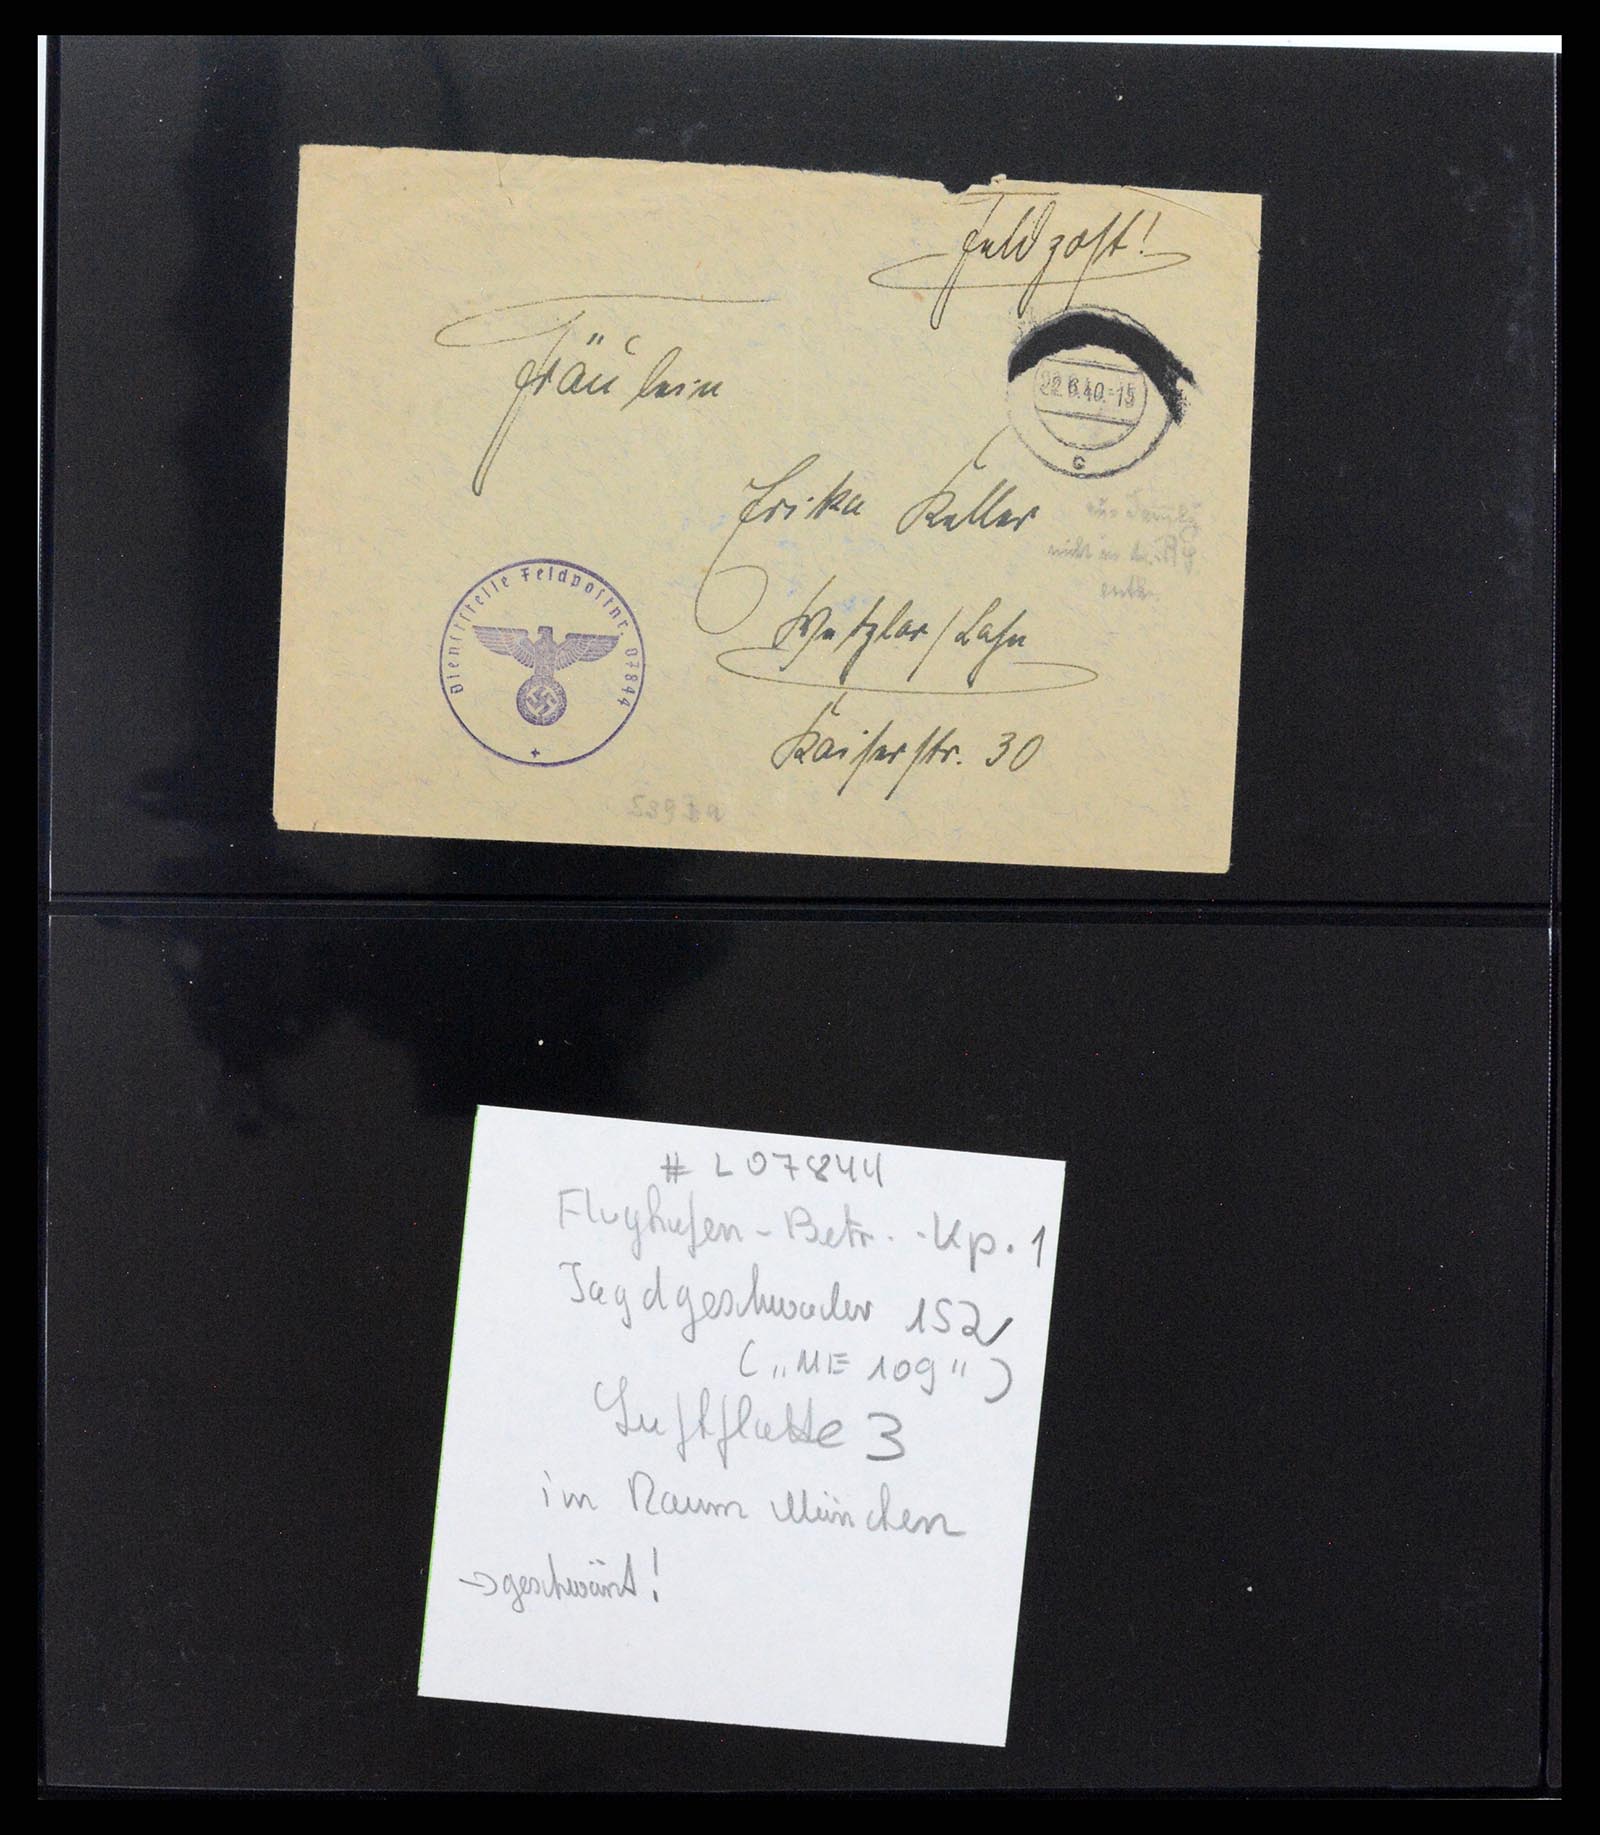 Feldpost!
Fräulein
22.6.40.-15
c
Erika Keller
Wetzlar/Lahn
Kaiserstr. 30
Dienststelle Feldpostnr. 07844
# L 07844
Flughafen-Betr.-Kp. 1
Jagdgeschwader 152
(„ME 109")
Luftflotte 3
im Raum München
→ geschwärzt!